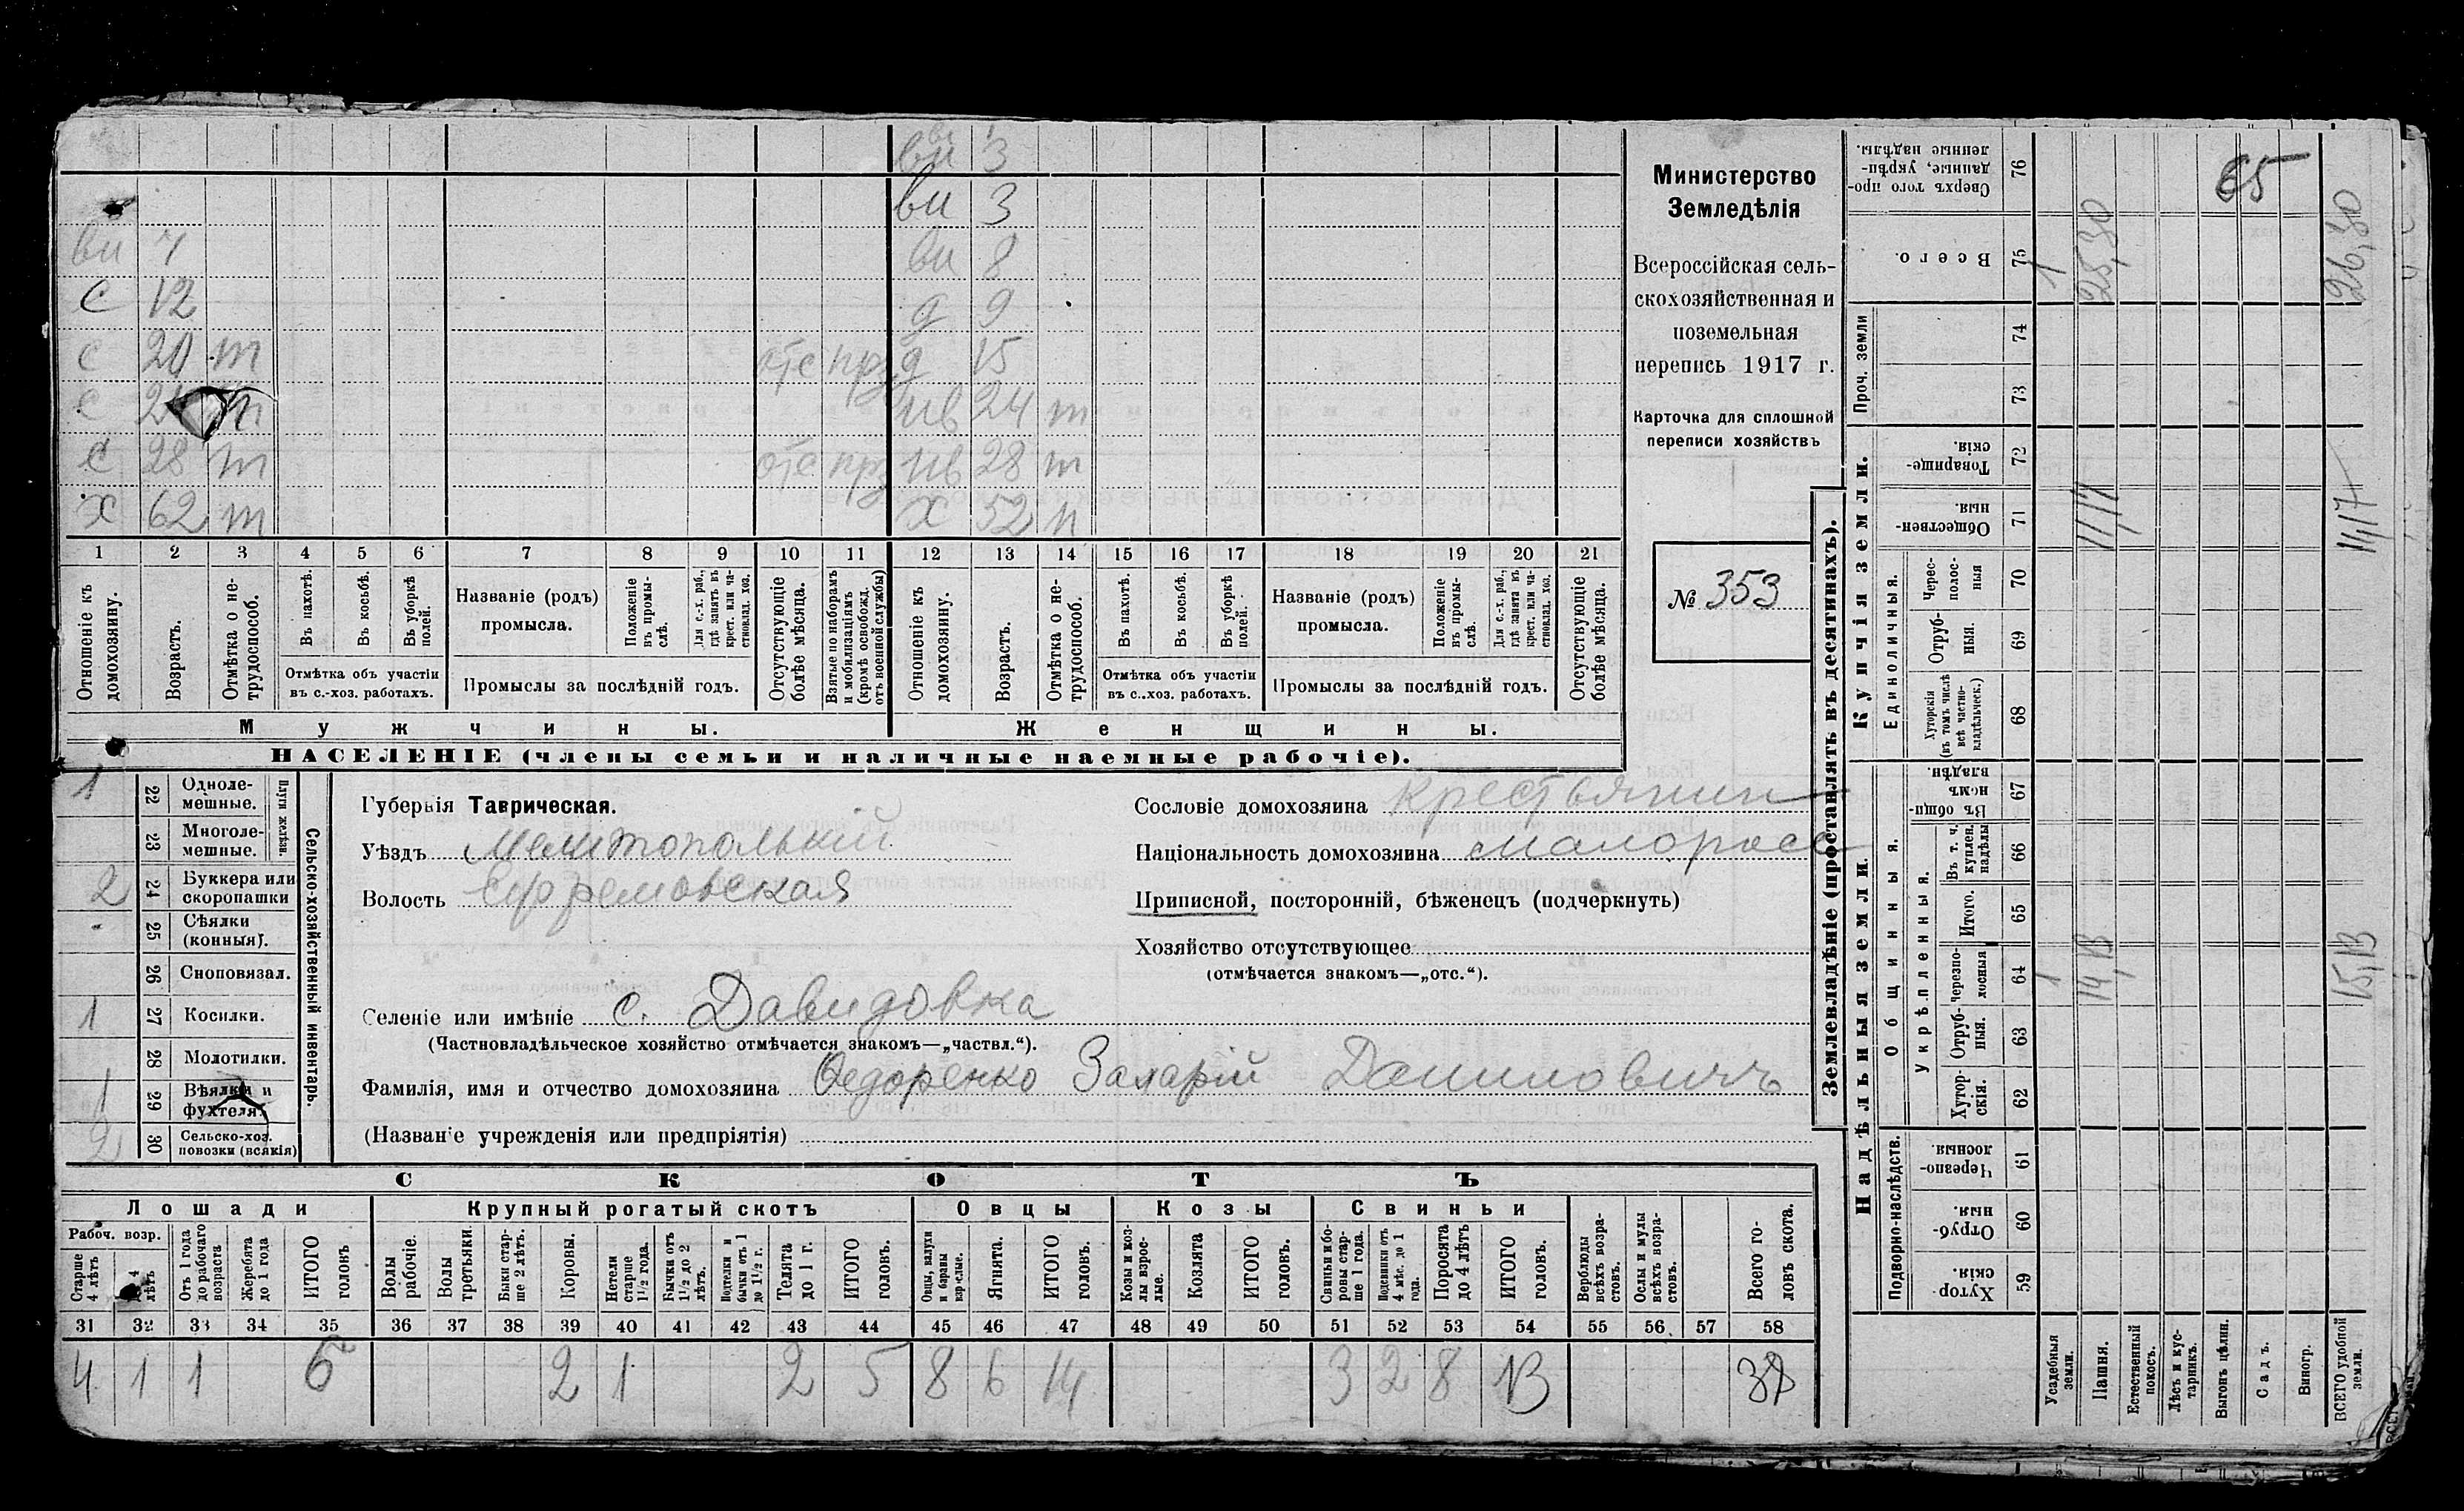 ви 3
ви 3
ви 7 ви 8
с 12 д 9
с 20 т отс прз д 15
с т нв 24 т
с 28 т отс прз нв 28 т
х 62 т х 52 п
1 2 3 4 5 6 7 8 9 10 11 12 13 14 15 16 17 18 19 20 21
Отношеніе къ домохозяину.
Возрастъ.
Отмѣтка о не-трудоспособ.
Въ пахотѣ.
Въ косьбѣ.
Въ уборкѣ полей.
Отмѣтка объ участіи
въ с.-хоз. работахъ.
Названіе (родъ)
промысла.
Положеніе въ промы-слѣ.
Для с.-х. раб., гдѣ занятъ въ крест. или ча-стновлад. хоз.
Промыслы за послѣдній годъ.
Отсутствующіе болѣе мѣсяца.
Взятые по наборамъ и мобилизаціямъ (кромѣ освобожд. отъ военной службы)
Отношеніе къ домохозяину.
Возрастъ.
Отмѣтка о не-трудоспособ.
Въ пахотѣ.
Въ косьбѣ.
Въ уборкѣ полей.
Отмѣтка объ участіи
въ с.-хоз. работахъ.
Названіе (родъ)
промысла.
Положеніе въ промы-слѣ.
Для с.-х. раб., гдѣ занята въ крест. или ча-стновлад. хоз.
Промыслы за послѣдній годъ.
Отсутствующіе болѣе мѣсяца.
Мужчины. Женщины.
НАСЕЛЕНІЕ (члены семьи и наличные наемные рабочіе).
Министерство
Земледѣлія
Всероссійская сель-
скохозяйственная и
поземельная
перепись 1917 г.
Карточка для сплошной
переписи хозяйствъ
№ 353
1 22 Одноле-мешные.
23 Многоле-мешные.
Плуги желѣзн.
2 24 Буккера или скоропашки
25 Сѣялки (конныя).
26 Сноповязал.
1 27 Косилки.
28 Молотилки.
1 29 Вѣялки и фухтеля.
2 30 Сельско-хоз. повозки (всякія)
Сельско-хозяйственный инвентарь.
Губернія Таврическая.
Уѣздъ Мелитополькій
Волость Ефремовская
Сословіе домохозяина крестьянин
Національность домохозяина малоросс
Приписной, посторонній, бѣженецъ (подчеркнуть)
Хозяйство отсутствующее
(отмѣчается знакомъ—„отс.“).
Селеніе или имѣніе с. Давидовка
(Частновладѣльческое хозяйство отмѣчается знакомъ—„частвл.“).
Фамилія, имя и отчество домохозяина Ѳедоренко Захарій Даниловичъ
(Названіе учрежденія или предпріятія)
СКОТЪ
Лошади Крупный рогатый скотъ Овцы Козы Свиньи
Рабоч. возр.
Старше 4 лѣтъ
До 4 лѣтъ
Отъ 1 года до рабочаго возраста
Жеребята до 1 года
ИТОГО головъ
Волы рабочіе.
Волы третьяки.
Быки стар-ше 2 лѣтъ.
Коровы.
Нетели старше 1½ года.
Бычки отъ 1½ до 2 лѣтъ.
Подтелки и бычки отъ 1 до 1½ г.
Телята до 1 г.
ИТОГО головъ.
Овцы, валухи и бараны взрослые.
Ягнята.
ИТОГО головъ.
Козы и коз-лы взрос-лые.
Козлята
ИТОГО головъ.
Свиньи и бо-ровы стар-ше 1 года.
Подсвинки отъ 4 мѣс. до 1 года.
Поросята до 4 лѣтъ
ИТОГО головъ.
Верблюды всѣхъ возра-стовъ.
Ослы и мулы всѣхъ возра-стовъ.
Всего го-ловъ скота.
31 32 33 34 35 36 37 38 39 40 41 42 43 44 45 46 47 48 49 50 51 52 53 54 55 56 57 58
4 1 1 6 2 1 2 5 8 6 14 3 2 8 13 38
Землевладѣніе (проставлять въ десятинахъ).
Надѣльныя земли.
Купчія земли.
Подворно-наслѣдств.
Общинныя.
Укрѣпленныя.
Единоличныя.
Проч. земли
Сверхъ того про-данные, укрѣп-ленные надѣлы. 76
Всего. 75
74
73
Товарище-скія. 72
Обществен-ныя. 71
Черес-полос-ныя 70
Отруб-ныя. 69
Хуторскія (въ томъ числѣ всѣ частно-владѣльческ.) 68
Въ общи-номъ владѣн. 67
Въ т. ч. куплен. надѣлы 66
Итого. 65
Черезпо-лосныя 64
Отруб-ныя. 63
Хутор-скія. 62
Черезпо-лосныя. 61
Отруб-ныя. 60
Хутор-скія. 59
Усадебныя земли. 1 1
Пашня. 14,13 11,17 25,30
Естественный покосъ.
Лѣсъ и кус-тарникъ.
Выгонъ цѣлин.
Садъ.
Виногр.
ВСЕГО удобной земли. 15,13 11,17 26,30
65